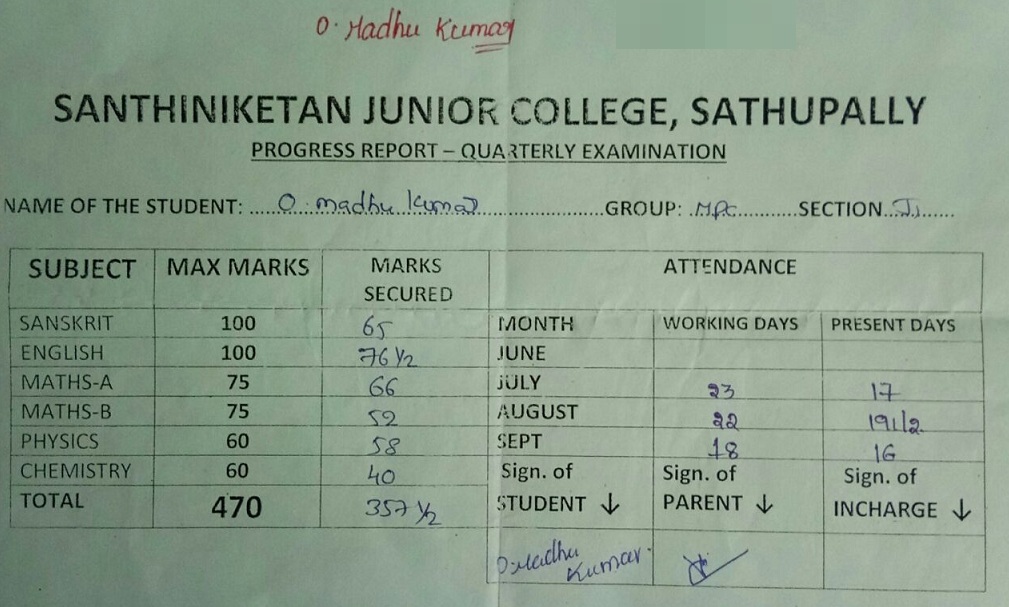 O. Madhu Kumar
SANTHINIKETAN JUNIOR COLLEGE, SATHUPALLY
PROGRESS REPORT – QUARTERLY EXAMINATION
NAME OF THE STUDENT: ..... O. madhu kumar ..... GROUP: .MPC.......... SECTION...J1......
SUBJECT MAX MARKS MARKS SECURED ATTENDANCE
SANSKRIT 100 65 MONTH WORKING DAYS PRESENT DAYS
ENGLISH 100 76 1/2 JUNE
MATHS-A 75 66 JULY 23 17
MATHS-B 75 52 AUGUST 22 19 1/2
PHYSICS 60 58 SEPT 18 16
CHEMISTRY 60 40 Sign. of Sign. of Sign. of
TOTAL 470 357 1/2 STUDENT ↓ PARENT ↓ INCHARGE ↓
O. Madhu Kumar.